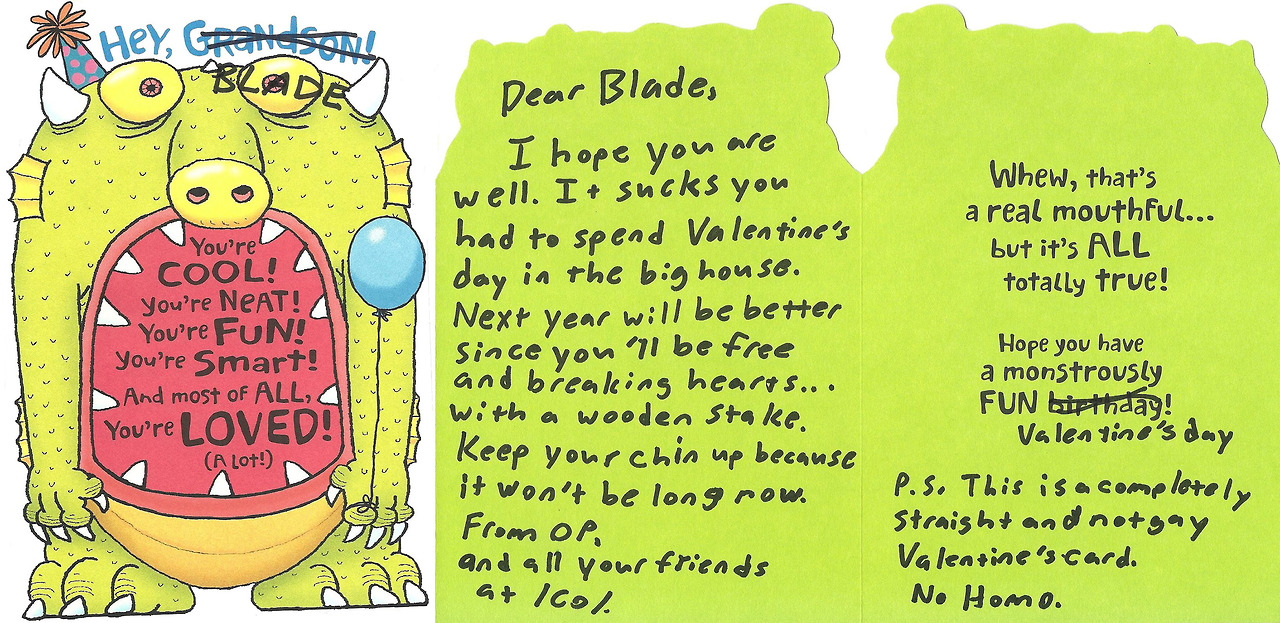 Hey, Grandson!
BLADE
You're
COOL!
You're NEAT!
You're FUN!
You're Smart!
And most of ALL,
You're LOVED!
(A LOT!)
Dear Blade,
I hope you are
well. It sucks you
had to spend Valentine's
day in the big house.
Next year will be better
since you'll be free
and breaking hearts...
with a wooden stake.
Keep your chin up because
it won't be long now.
From OP,
and all your friends
at /co/.
Whew, that's
a real mouthful...
but it's ALL
totally true!
Hope you have
a monstrously
FUN birthday!
Valentine's day
P.S. This is a completely
straight and not gay
Valentine's card.
No Homo.